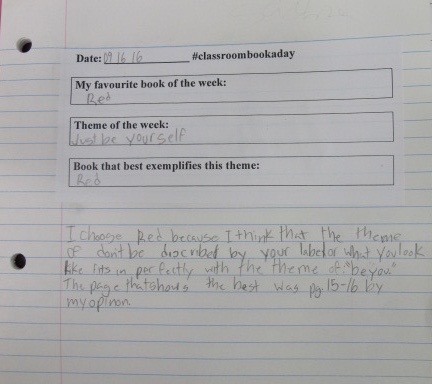 Date: 09 16 16 #classroombookaday
My favourite book of the week:
Red
Theme of the week:
Just be yourself
Book that best exemplifies this theme:
Red
I choose Red because I think that the theme
of don't be discribed by your label or what you look
like fits in perfectly with the theme of "be you"
The page that shows the best was pg 15-16 by
my opinon